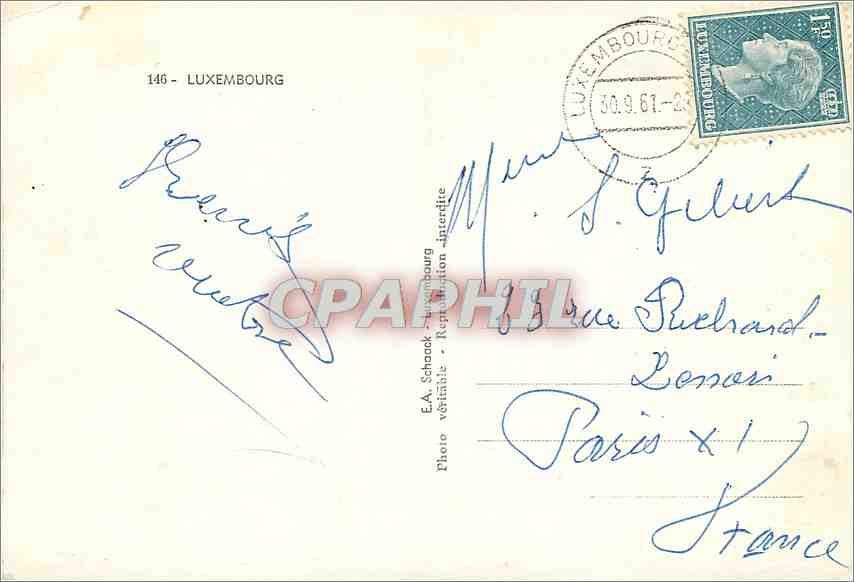 146 - LUXEMBOURG
LUXEMBOURG
30.9.61-2
1.50 F
LUXEMBOURG
E.A. Schaack - Luxembourg
Photo véritable - Reproduction interdite
CPAPHIL
S. Gilbert
rue Richard-
Lenoir
Paris XI
France